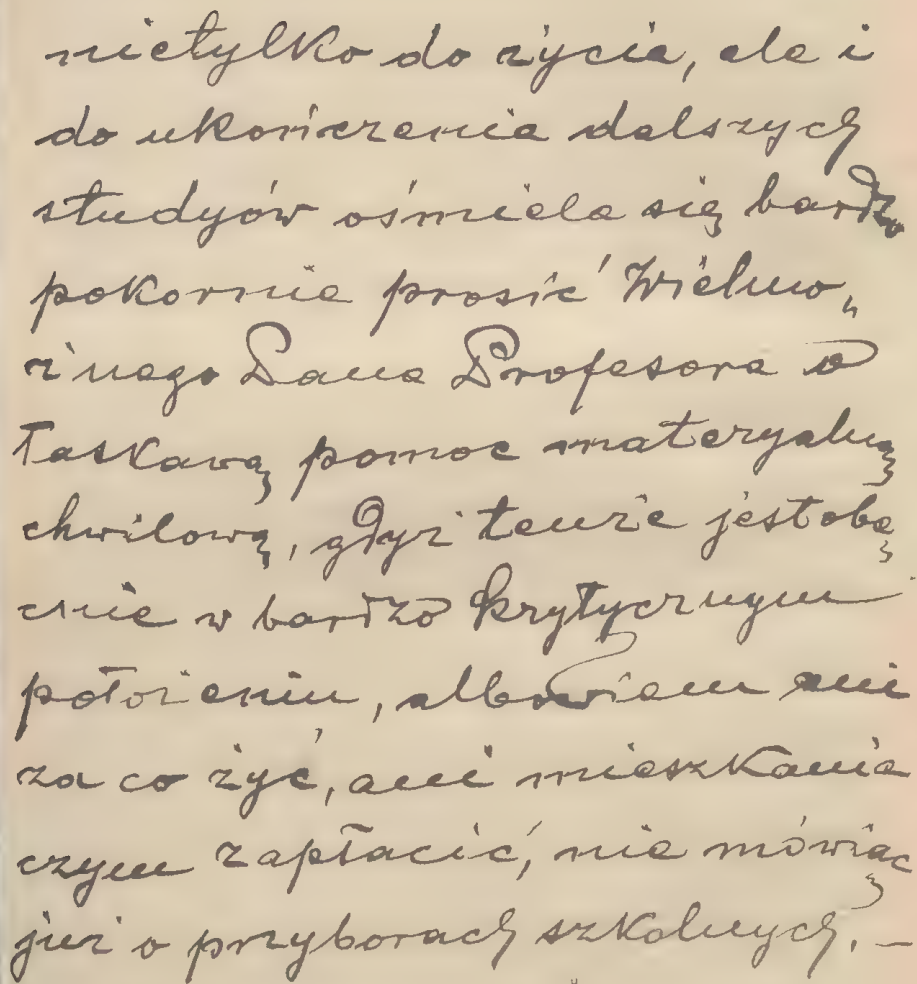 nietylko do życia, ale i
do ukończenia dalszych
studyów ośmiela się bardzo
pokornie prosić Wielmo„
żnego Pana Profesora o
łaskawą pomoc materyalną
chwilową, gdyż tenże jest obe
cnie w bardzo krytycznym
położeniu, albowiem ani
za co żyć, ani mieszkania
czym zapłacić, nie mówiąc
już o przyborach szkolnych. –